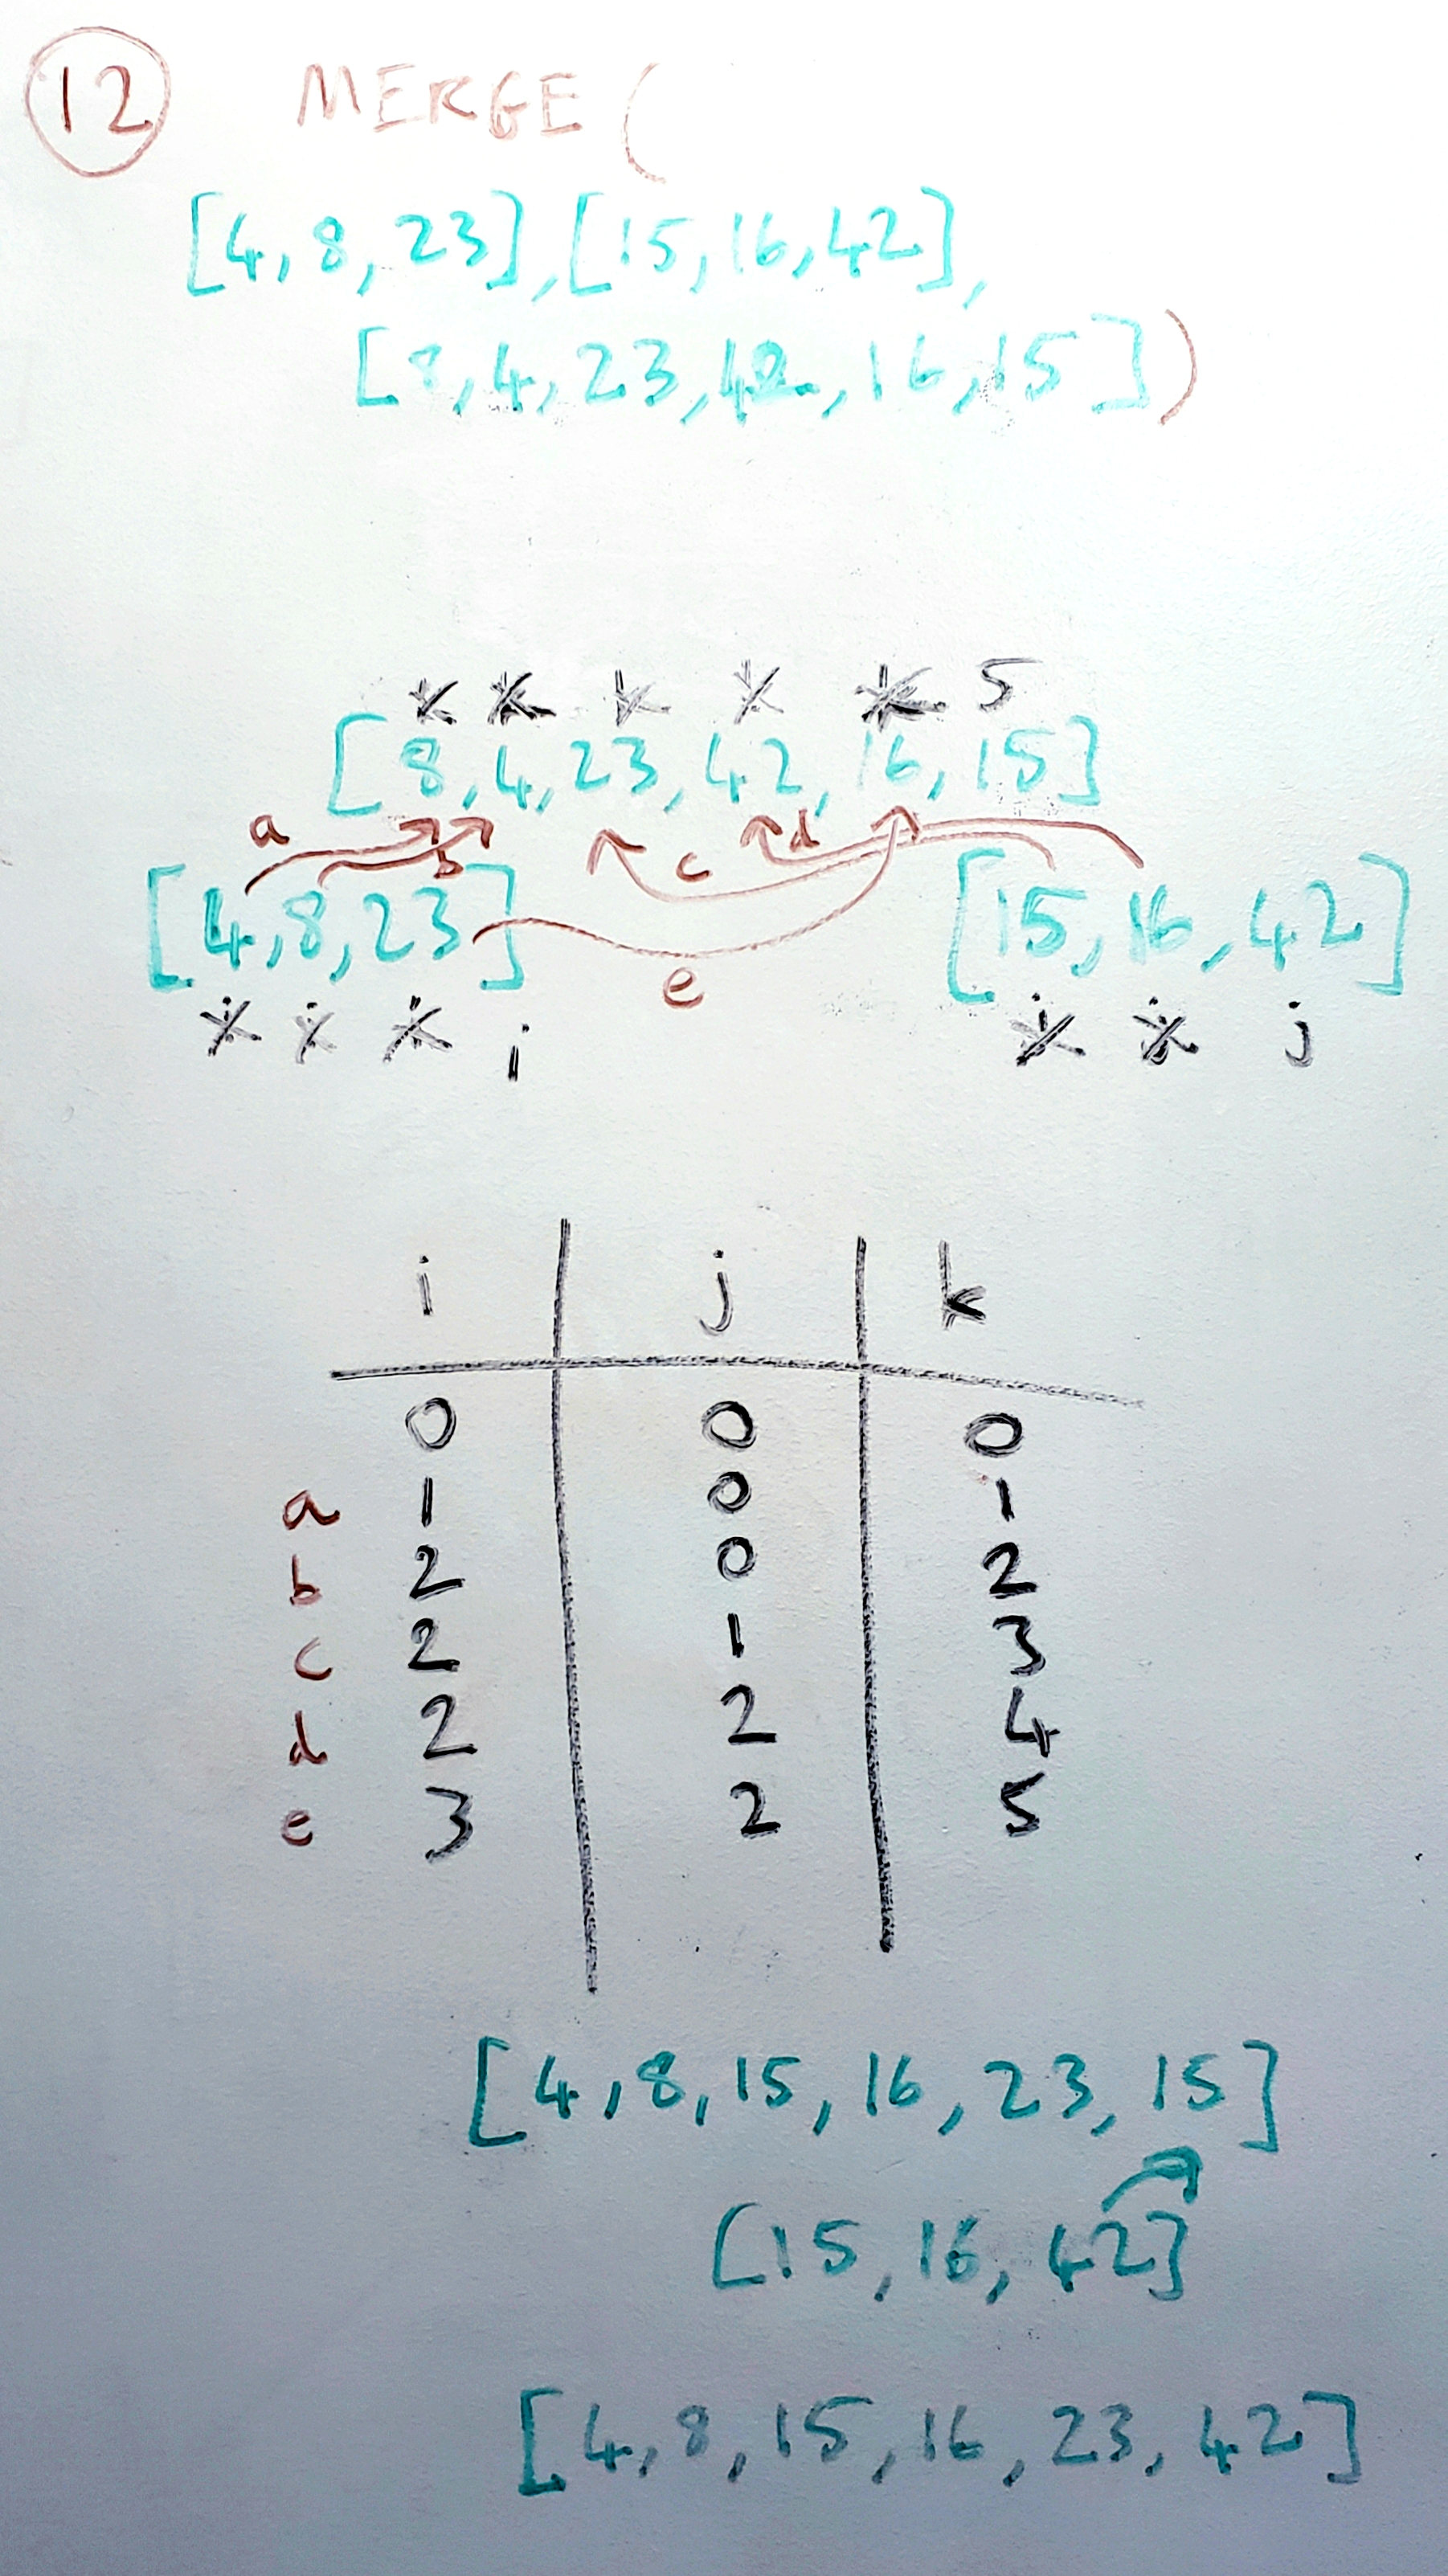 12 MERGE (
[4, 8, 23], [15, 16, 42],
[8, 4, 23, 42, 16, 15])
k k k k k 5
[8, 4, 23, 42, 16, 15]
a b c d
[4, 8, 23] [15, 16, 42]
e
i i i i j j j
i j k
0 0 0
a 1 0 1
b 2 0 2
c 2 1 3
d 2 2 4
e 3 2 5
[4, 8, 15, 16, 23, 15]
[15, 16, 42]
[4, 8, 15, 16, 23, 42]